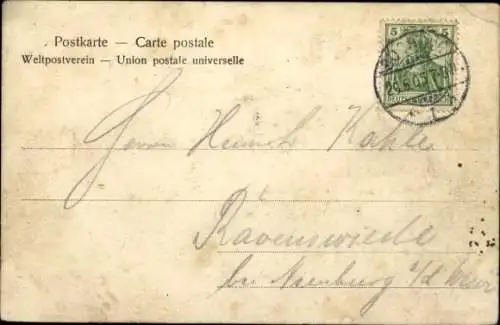 Postkarte — Carte postale
Weltpostverein — Union postale universelle
5 5
Herrn Heinrich Kahle
Ravenswiede
bei Nienburg a/d Weser